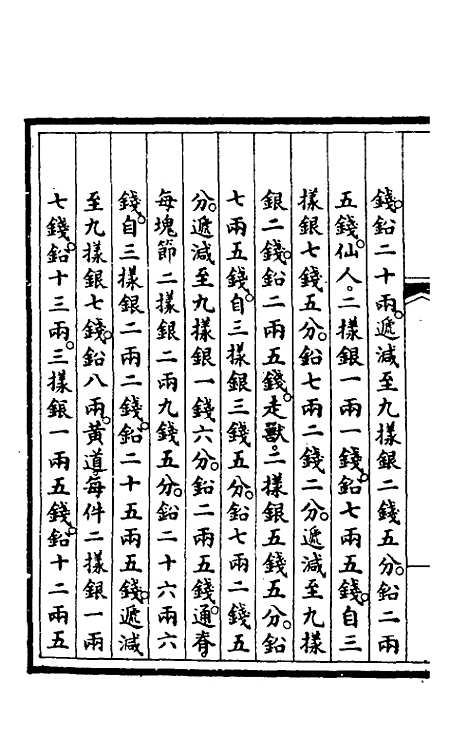 錢。鉛二十兩。遞減至九樣銀二錢五分。鉛二兩
五錢。仙人。二樣銀一兩一錢。鉛七兩五錢。自三
樣銀七錢五分。鉛七兩二錢二分。遞減至九樣
銀二錢。鉛二兩五錢。走獸。二樣銀五錢五分。鉛
七兩五錢。自三樣銀三錢五分。鉛七兩二錢五
分。遞減至九樣銀一錢六分。鉛二兩五錢。通脊。
每塊節二樣銀二兩九錢五分。鉛二十六兩六
錢。自三樣銀二兩二錢。鉛二十五兩五錢。遞減
至九樣銀七錢。鉛八兩。黃道。每件二樣銀一兩
七錢。鉛十三兩。三樣銀一兩五錢。鉛十二兩五